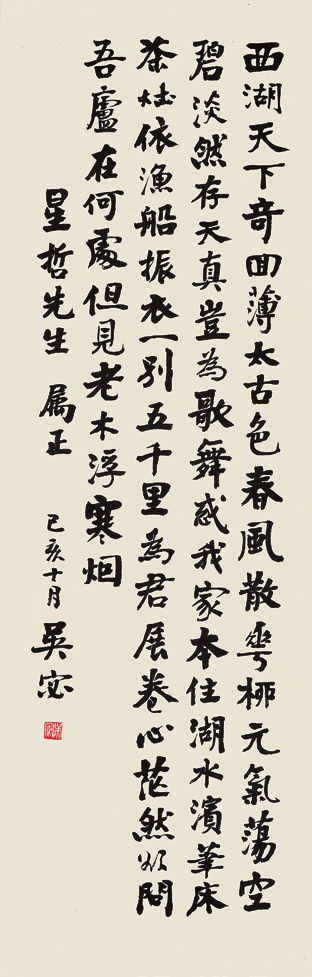 西湖天下奇回薄太古色春風散華柳元氣蕩空
碧淡然存天真豈為歌舞惑我家本住湖水濱筆床
茶灶依漁船振衣一別五千里為君展卷心茫然欲問
吾廬在何處但見老木浮寒烟
星哲先生 属正 己亥十月 吴宓